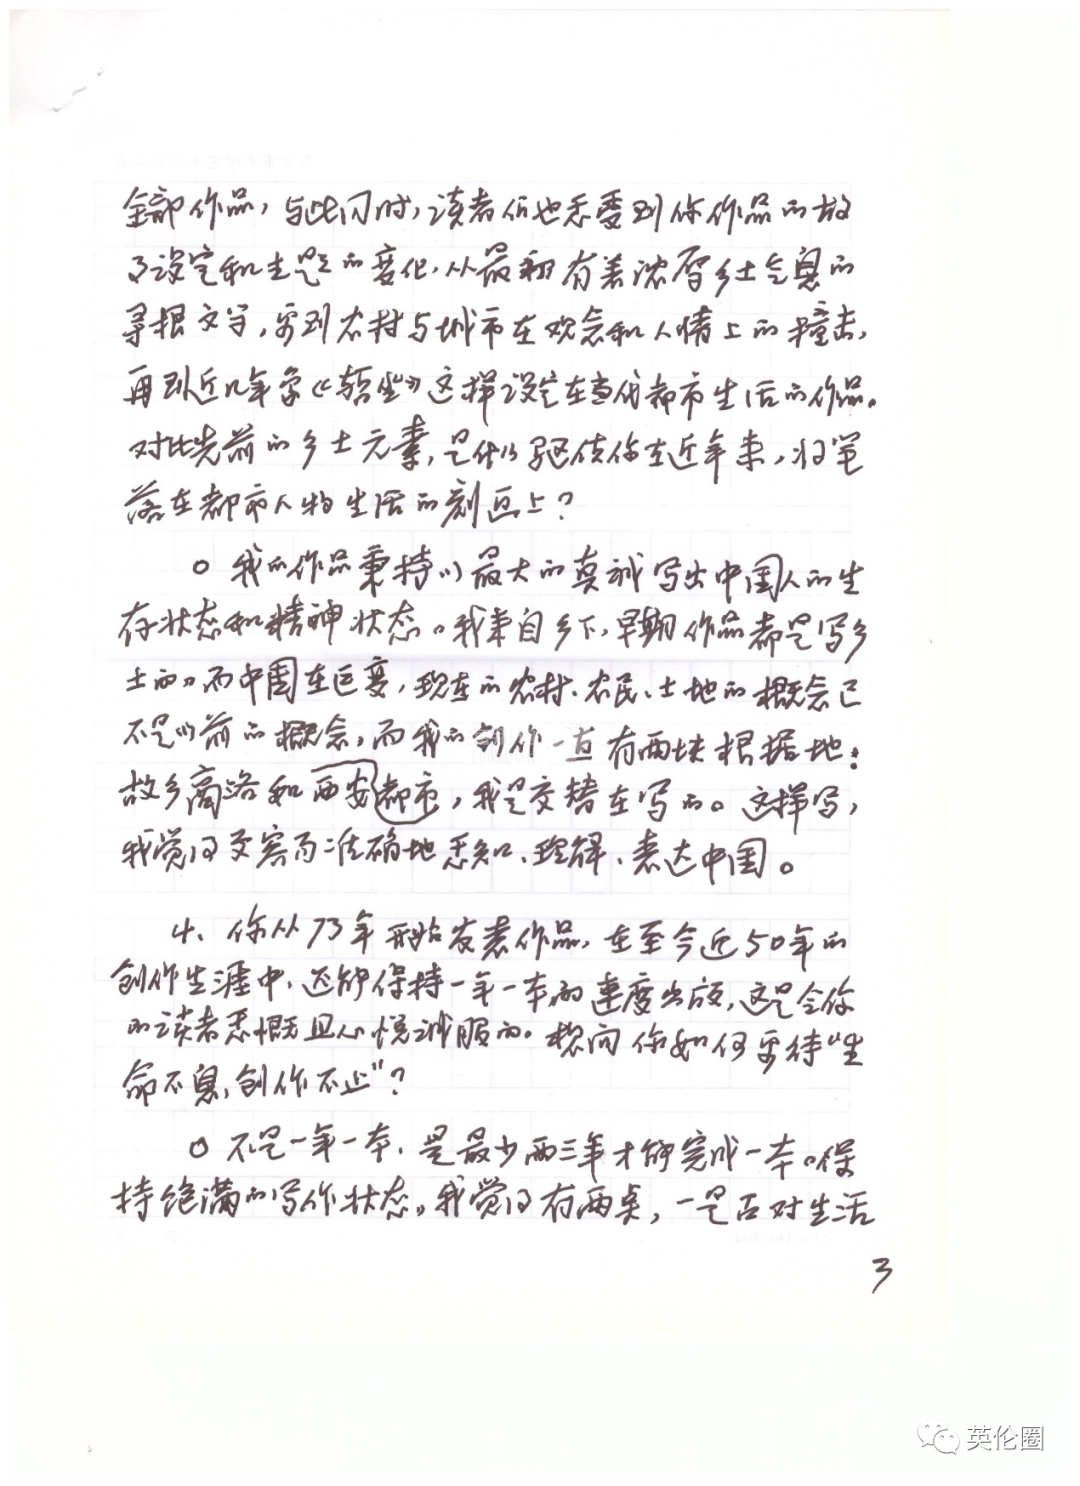 全部作品，与此同时，读者们也感受到你作品的故
事设定和主题的变化，从最初有着浓厚乡土气息的
寻根文学，写到农村与城市在观念和人情上的撞击，
再到近几年写《暂坐》这样设定在当代都市生活的作品。
对比先前的乡土元素，是什么驱使你在近年来，将笔
落在都市人物生活的刻画上？
○ 我的作品秉持以最大的真诚写出中国人的生
存状态和精神状态。我来自乡下，早期作品都是写乡
土的。而中国在巨变，现在的农村、农民、土地的概念已
不是以前的概念，而我的创作一直有两块根据地：
故乡商洛和西安都市，我是交替在写的。这样写，
我觉得更容易准确地感知、理解、表达中国。
4、你从73年开始发表作品，在至今近50年的
创作生涯中，还能保持一年一本的速度出版，这是令你
的读者感慨且心悦诚服的。想问你如何看待“生
命不息，创作不止”？
○ 不是一年一本，是最少两三年才能完成一本。保
持饱满的写作状态，我觉得有两条，一是否对生活
3
英伦圈